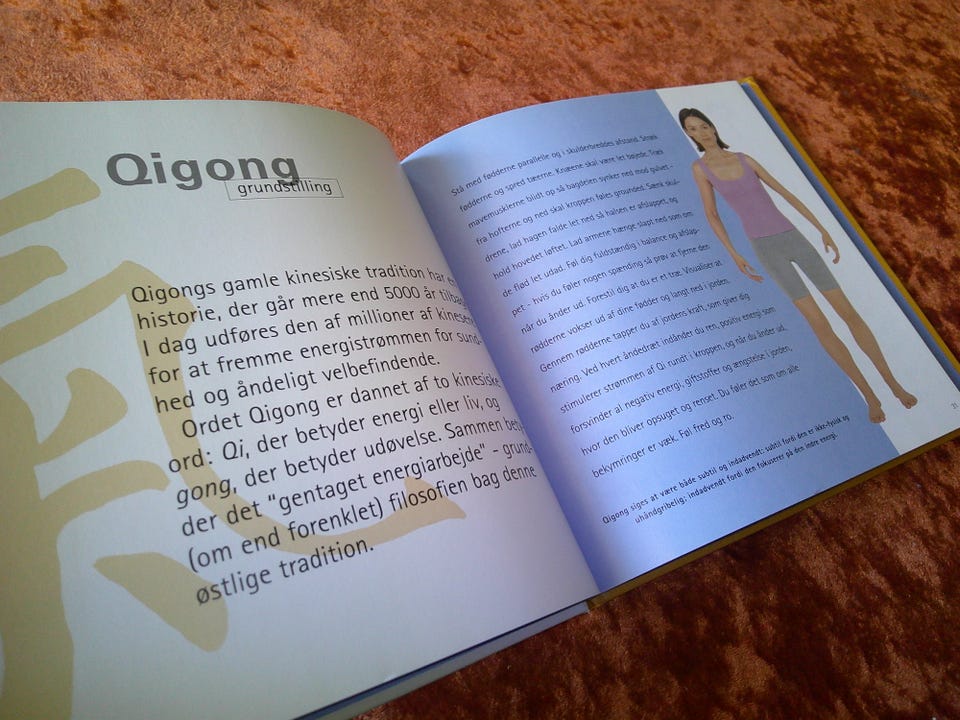 Qigong
grundstilling
Qigongs gamle kinesiske tradition har en
historie, der går mere end 5000 år tilbage.
I dag udføres den af millioner af kinesere
for at fremme energistrømmen for sund-
hed og åndeligt velbefindende.
Ordet Qigong er dannet af to kinesiske
ord: Qi, der betyder energi eller liv, og
gong, der betyder udøvelse. Sammen bety-
der det "gentaget energiarbejde" - grund-
(om end forenklet) filosofien bag denne
østlige tradition.
Stå med fødderne parallelle og i skulderbreddes afstand. Stræk
fødderne og spred tæerne. Knæene skal være let bøjede. Træk
mavemusklerne blidt op så bagdelen synker ned mod gulvet -
fra hofterne og ned skal kroppen føles grounded. Sænk skul-
drene, lad hagen falde let ned så halsen er afslappet, og
hold hovedet løftet. Lad armene hænge slapt ned som om
de flød let udad. Føl dig fuldstændig i balance og afslap-
pet - hvis du føler nogen spænding så prøv at fjerne den
når du ånder ud. Forestil dig at du er et træ. Visualiser at
rødderne vokser ud af dine fødder og langt ned i jorden.
Gennem rødderne tapper du af jordens kraft, som giver dig
næring. Ved hvert åndedræt indånder du ren, positiv energi som
stimulerer strømmen af Qi rundt i kroppen, og når du ånder ud,
forsvinder al negativ energi, giftstoffer og ængstelse i jorden,
hvor den bliver opsuget og renset. Du føler det som om alle
bekymringer er væk. Føl fred og ro.
Qigong siges at være både subtil og indadvendt: subtil fordi den er ikke-fysisk og
uhåndgribelig; indadvendt fordi den fokuserer på den indre energi.